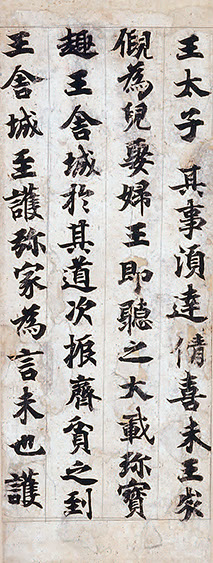 王太子其事湏達倩喜未王
倪為兒娶婦王即聽之大載珎寶
趣王舍城於其道次振齊貧之到
王舍城至護弥家為言未也護